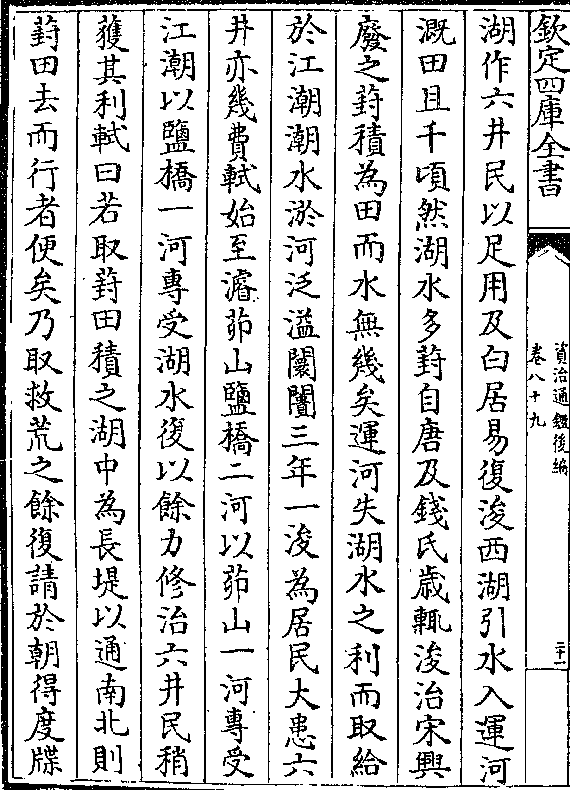 欽定四庫全書
資治通鑑後編
卷八十九
二十一
湖作六井民以足用及白居易復浚西湖引水入運河
溉田且千頃然湖水多葑自唐及錢氏歲輒浚治宋興
廢之葑積為田而水無幾矣運河失湖水之利而取給
於江潮潮水淤河泛溢闤闠三年一浚為居民大患六
井亦幾費軾始至濬茆山鹽橋二河以茆山一河專受
江潮以鹽橋一河專受湖水復以餘力修治六井民稍
獲其利軾曰若取葑田積之湖中為長堤以通南北則
葑田去而行者便矣乃取救荒之餘復請於朝得度牒